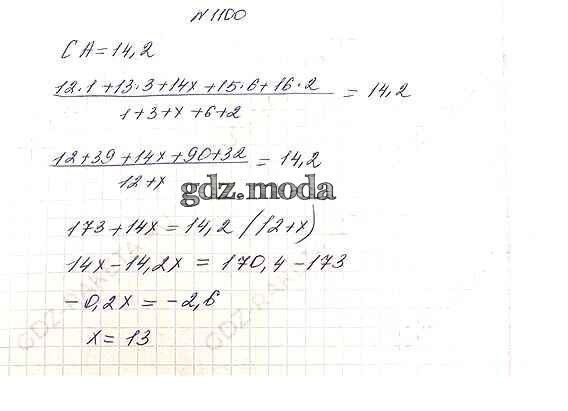 №1100
СА = 14,2
12·1+13·3+14x+15·6+16·2 = 14,2
1+3+x+6+2
12+39+14x+90+32 = 14,2
12+x
gdz.moda
173+14x = 14,2 (12+x)
14x-14,2x = 170,4-173
-0,2x = -2,6
x = 13